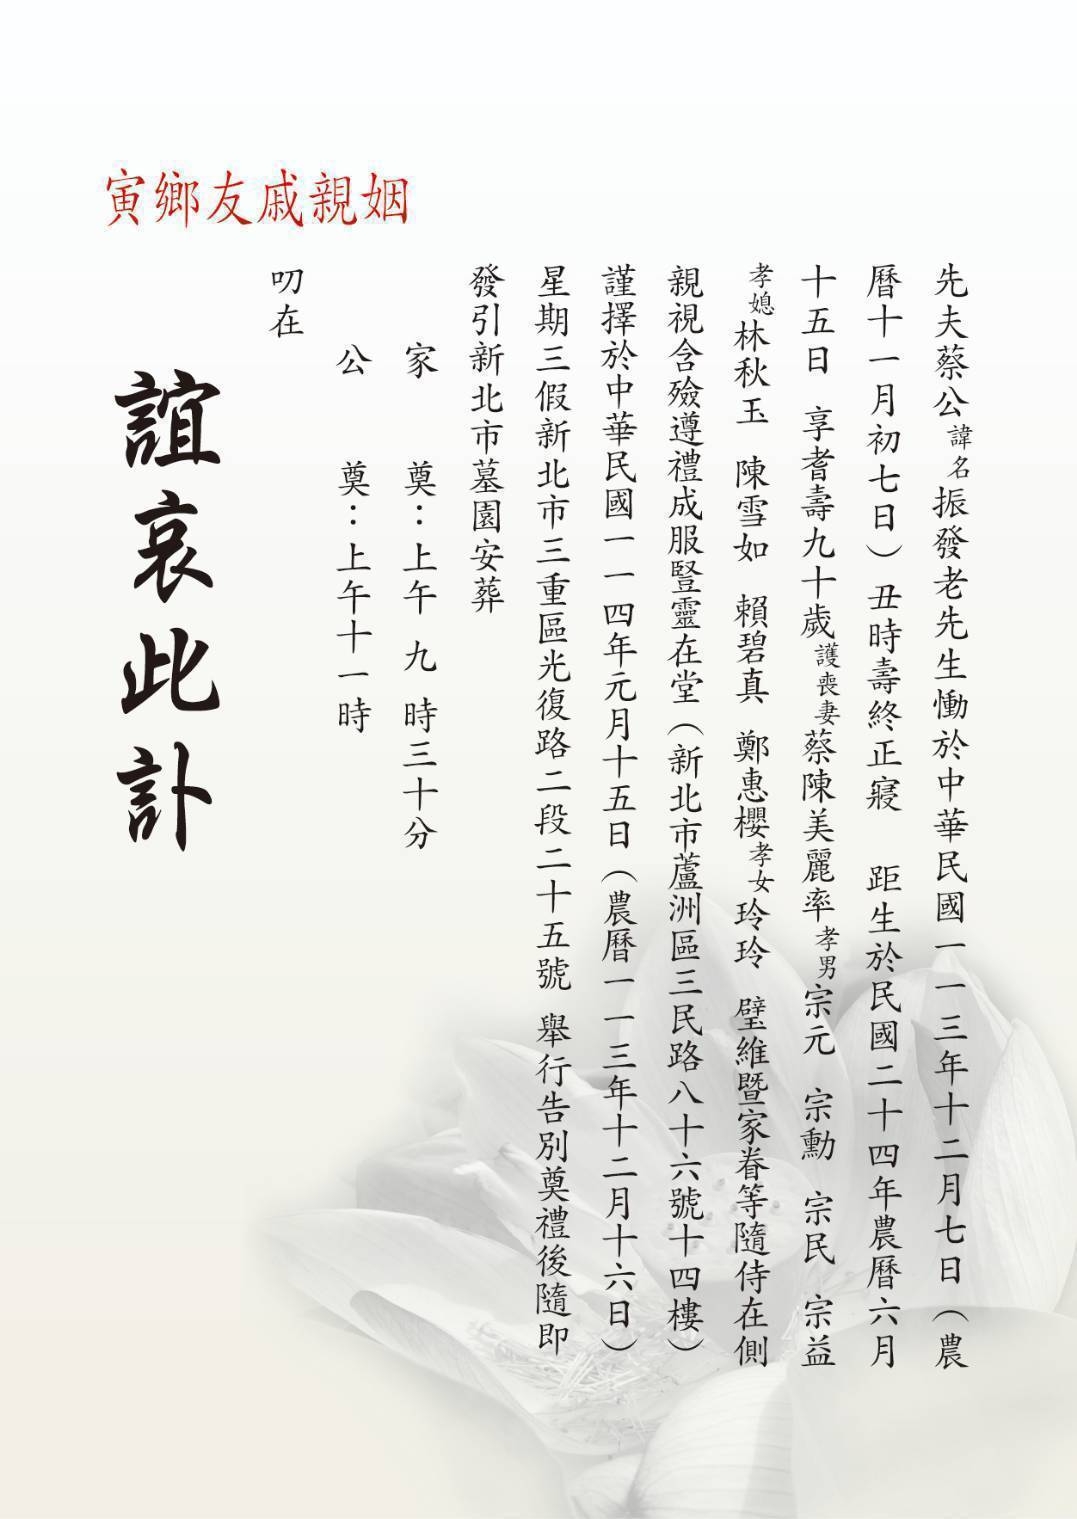 先夫蔡公諱名振發老先生慟於中華民國一一三年十二月七日（農
曆十一月初七日）丑時壽終正寢　距生於民國二十四年農曆六月
十五日　享耆壽九十歲護喪妻蔡陳美麗率孝男宗元　宗勳　宗民　宗益
孝媳林秋玉　陳雪如　賴碧真　鄭惠櫻孝女玲玲　璧維暨家眷等隨侍在側
親視含殮遵禮成服豎靈在堂（新北市蘆洲區三民路八十六號十四樓）
謹擇於中華民國一一四年元月十五日（農曆一一三年十二月十六日）
星期三假新北市三重區光復路二段二十五號　舉行告別奠禮後隨即
發引新北市墓園安葬
家　奠：上午 九 時三十分
公　奠：上午十一時
叨在
寅鄉友戚親姻
誼哀此訃